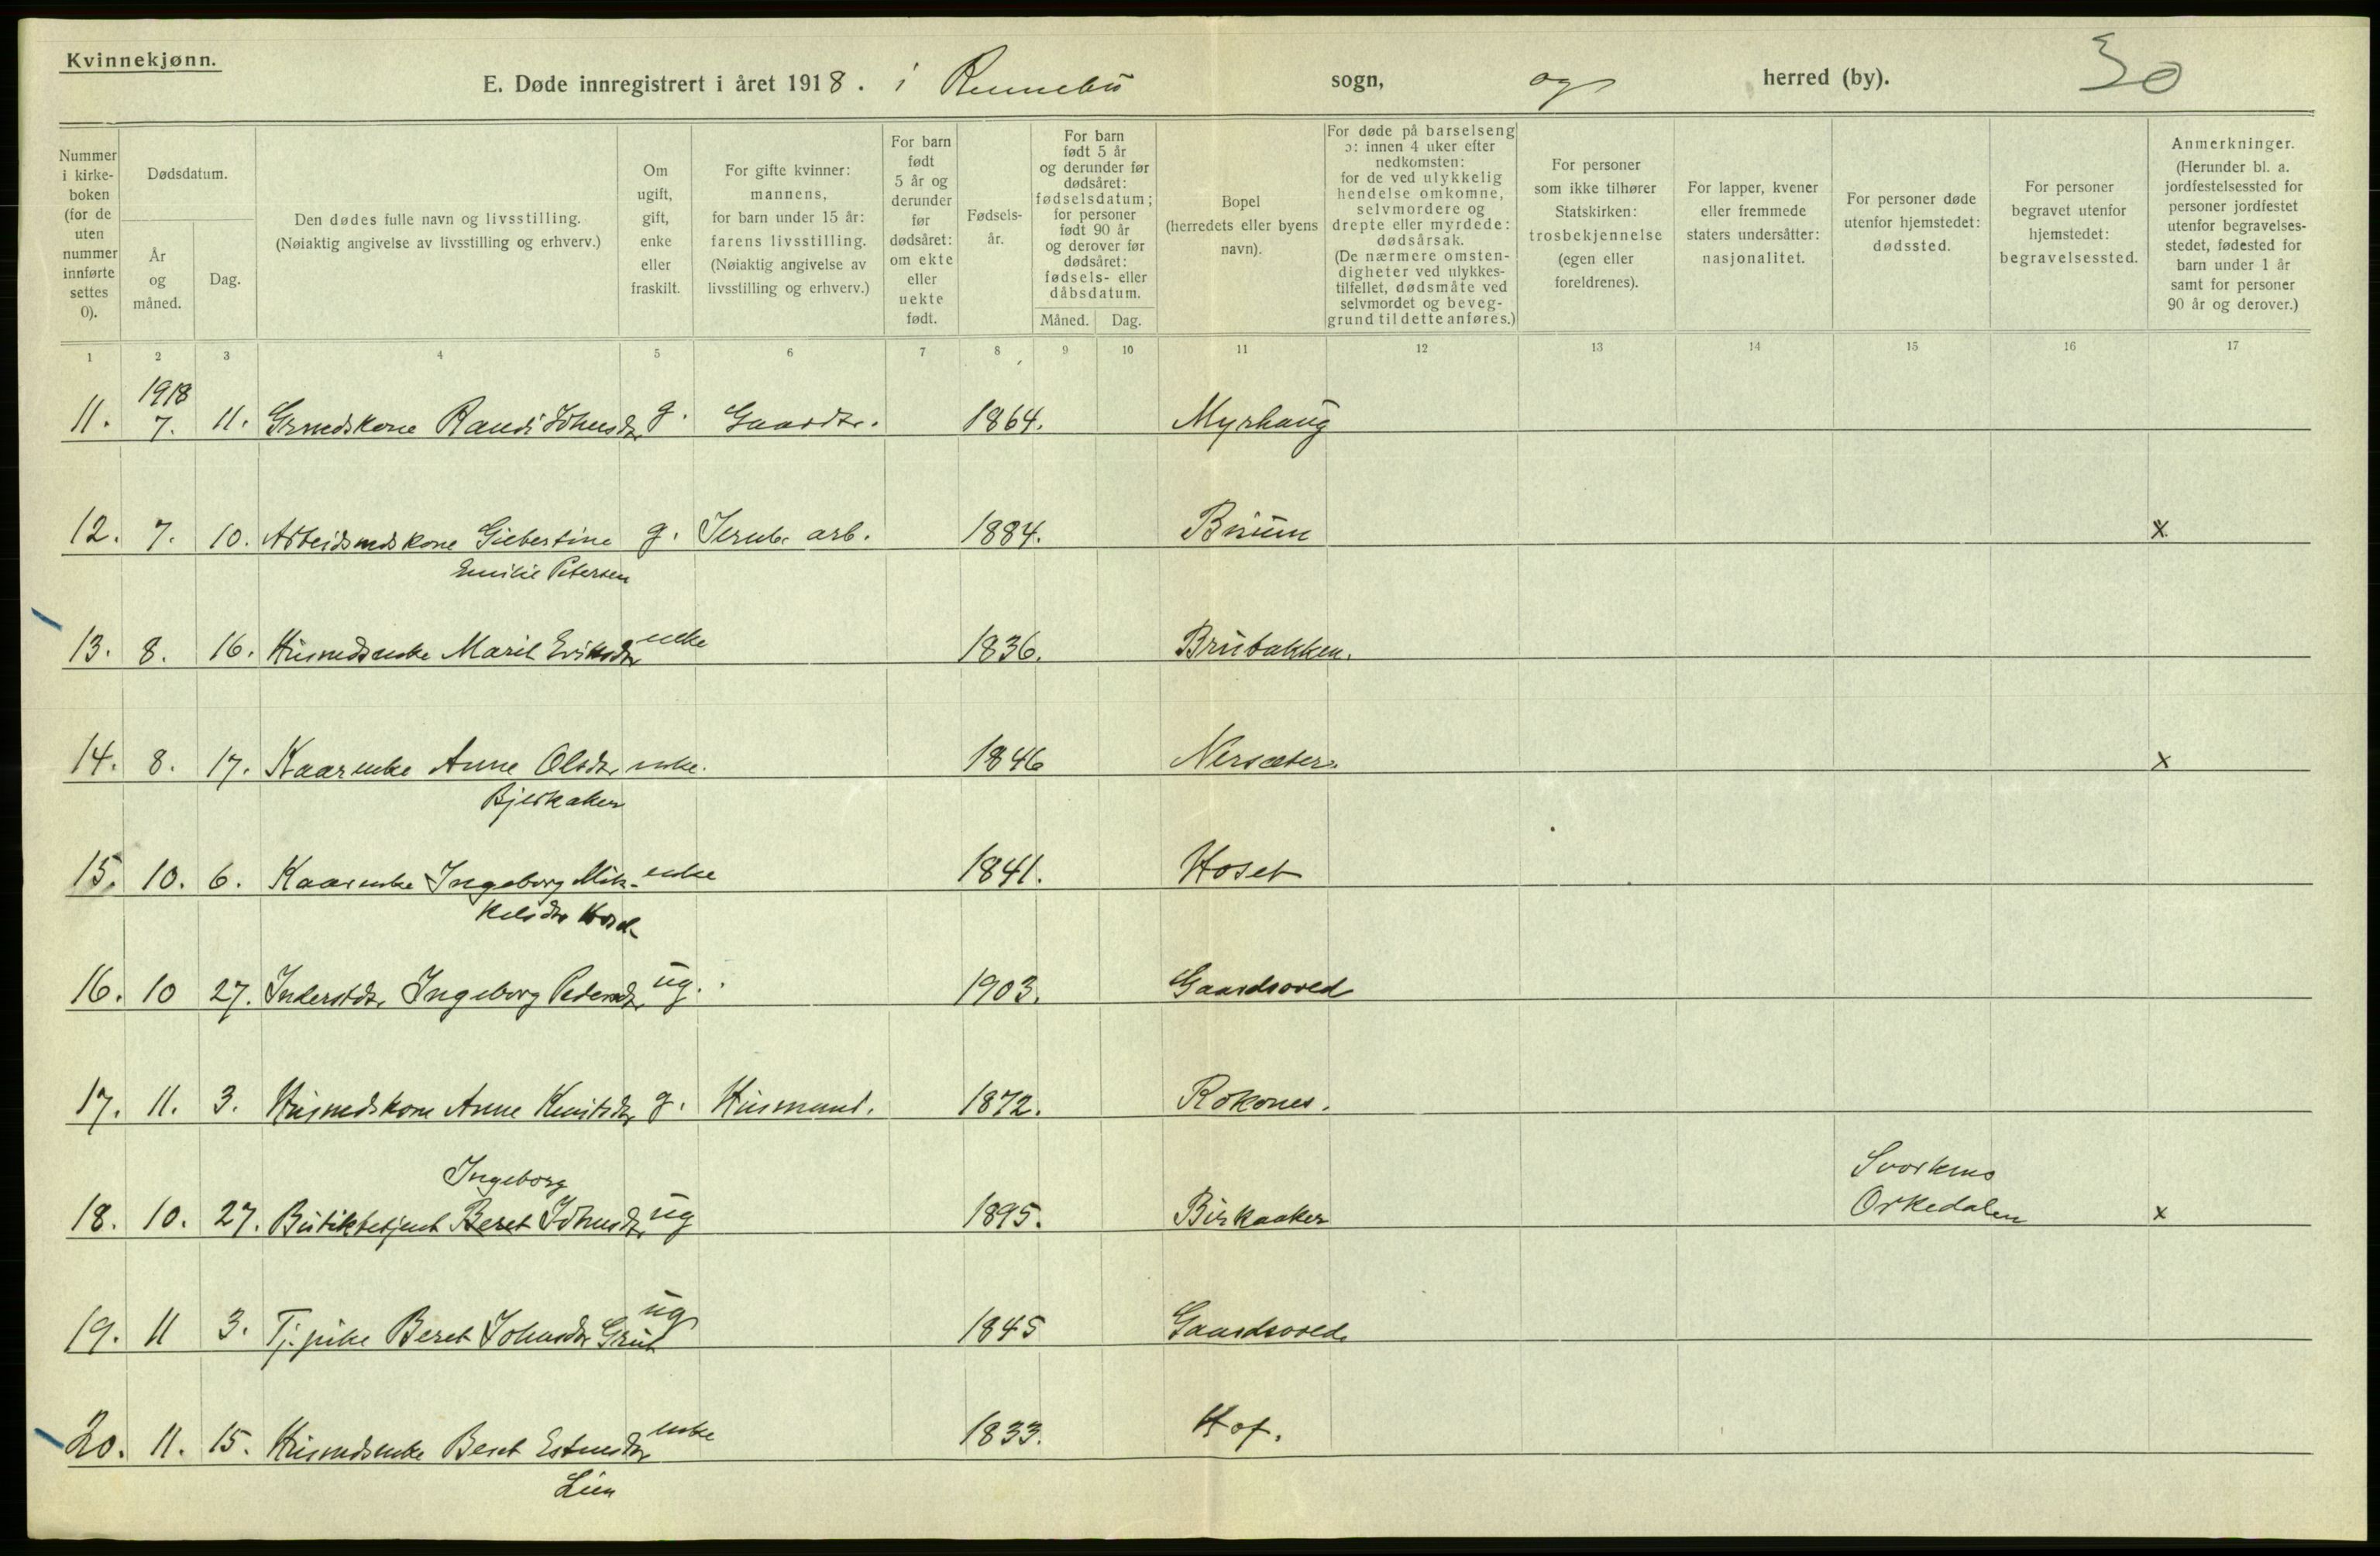 Kvinnekjønn.
E. Døde innregistrert i året 1918. i Rennebu sogn, og herred (by). 30
Nummer i kirke-boken (for de uten nummer innførte settes 0).
Dødsdatum.
År og måned.
Dag.
Den dødes fulle navn og livsstilling. (Nøiaktig angivelse av livsstilling og erhverv.)
Om ugift, gift, enke eller fraskilt.
For gifte kvinner: mannens, for barn under 15 år: farens livsstilling. (Nøiaktig angivelse av livsstilling og erhverv.)
For barn født 5 år og derunder før dødsåret: om ekte eller uekte født.
Fødsels-år.
For barn født 5 år og derunder før dødsåret: fødselsdatum; for personer født 90 år og derover før dødsåret: fødsels- eller dåbsdatum.
Måned. Dag.
Bopel (herredets eller byens navn).
For døde på barselseng ɔ: innen 4 uker efter nedkomsten: for de ved ulykkelig hendelse omkomne, selvmordere og drepte eller myrdede: dødsårsak. (De nærmere omsten-digheter ved ulykkes-tilfellet, dødsmåte ved selvmordet og beveg-grund til dette anføres.)
For personer som ikke tilhører Statskirken: trosbekjennelse (egen eller foreldrenes).
For lapper, kvener eller fremmede staters undersåtter: nasjonalitet.
For personer døde utenfor hjemstedet: dødssted.
For personer begravet utenfor hjemstedet: begravelsessted.
Anmerkninger. (Herunder bl. a. jordfestelsessted for personer jordfestet utenfor begravelses-stedet, fødested for barn under 1 år samt for personer 90 år og derover.)
1 2 3 4 5 6 7 8 9 10 11 12 13 14 15 16 17
1918
11. 7. 11. Grmdskone Randi Johnsdr g. Gaardbr. 1864. Myrhaug
12. 7. 10. Arbeidsmdskone Giebertine g. Jernb. arb. 1884. Bruum x
Emilie Petersen
13. 8. 16. Husmdsenke Marit Eriksdr enke 1836. Brubakken.
14. 8. 17. Kaarenke Anne Olsdr enke. 1846 Nersæter. x
Bjerkaker
15. 10. 6. Kaarenke Ingeborg Mik- enke 1841. Hoset
kelsdr Hoset
16. 10 27. Inderstdr. Ingeborg Pedersdr ug. 1903. Gaardsoved
17. 11. 3. Husmdskone Anne Knutsdr g. Husmand. 1872. Rokones.
Ingeborg Svorkmo
18. 10. 27. Butikbetjent Beret Johnsdr ug 1895. Birkaaker Orkedalen x
19. 11 3. Tj. pike Beret Johnsdr Grut ug 1845 Gaardsoved.
20. 11. 15. Husmdsenke Beret Estensdr enke 1833. Hof.
Lien